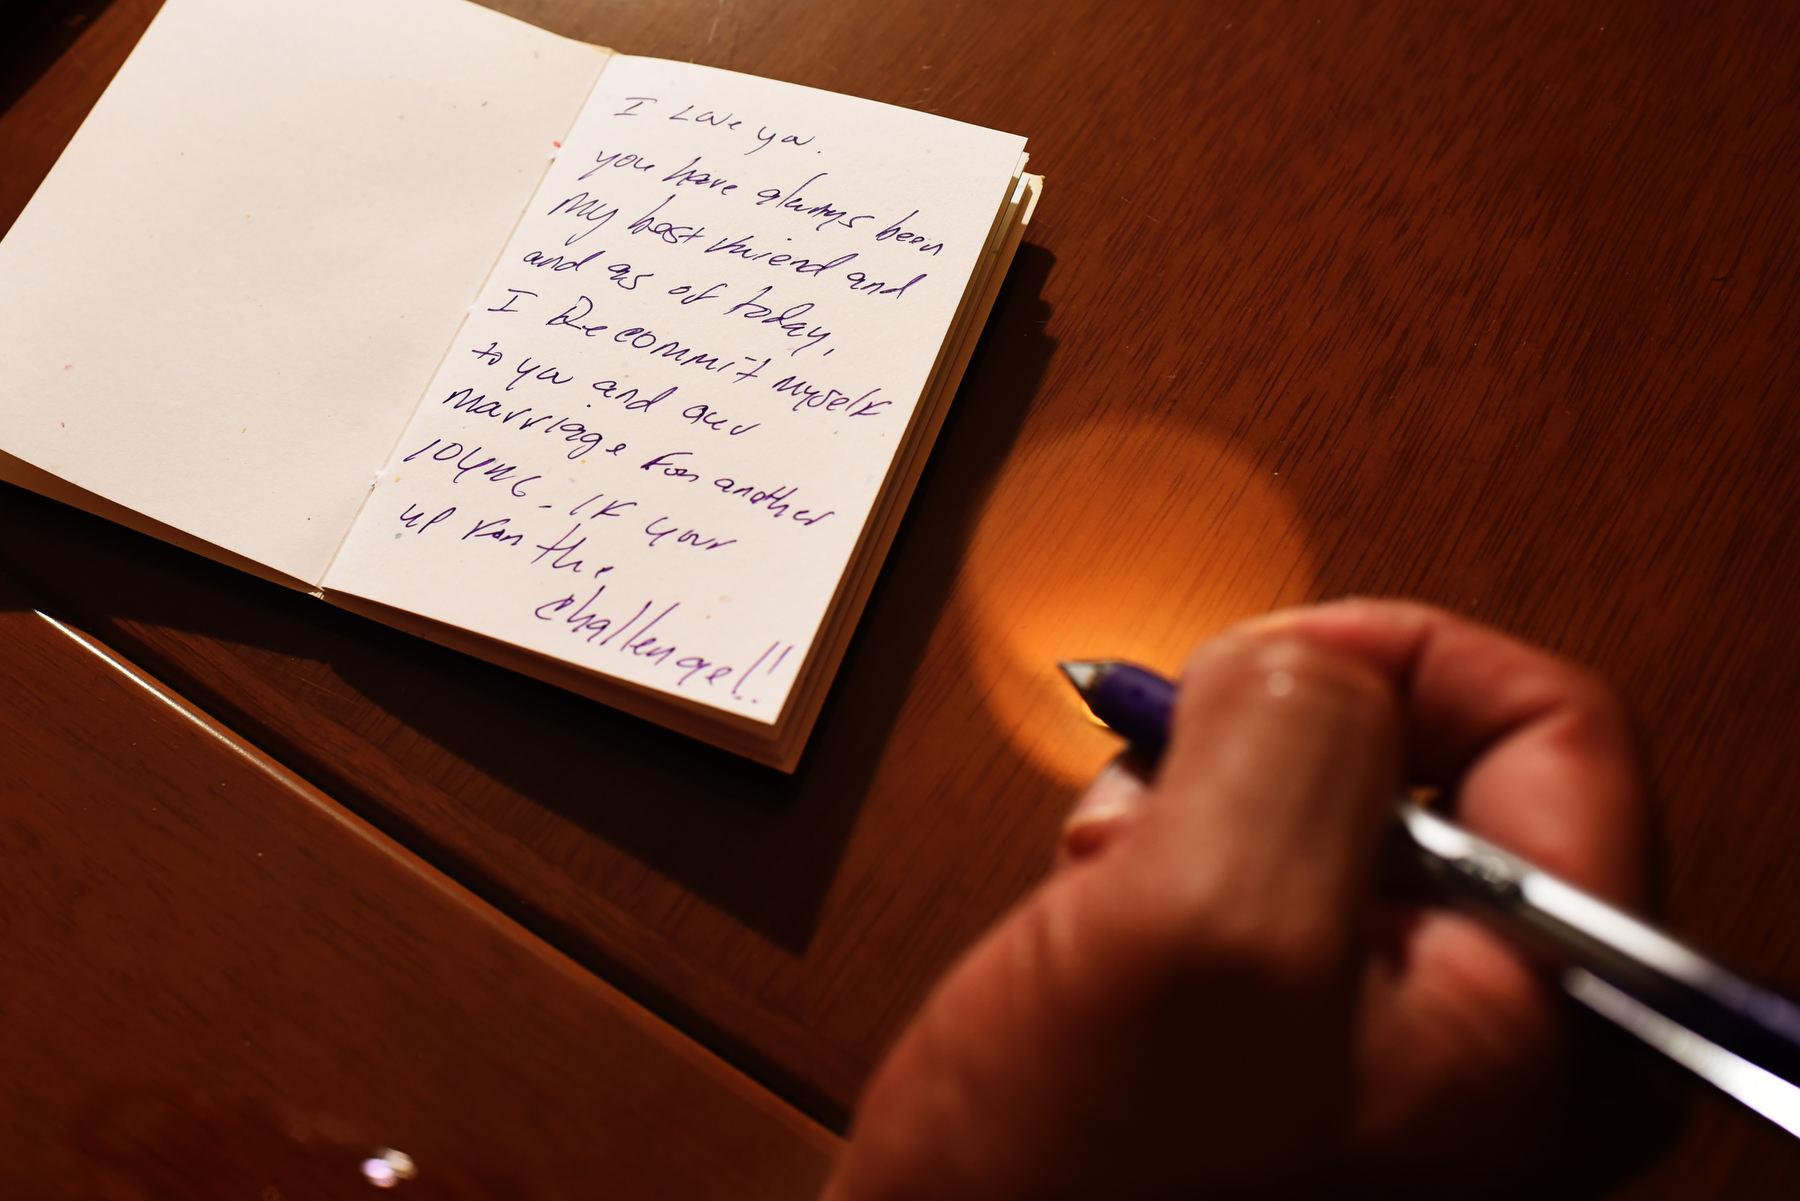 I Love you.
you have always been
my best friend and
and as of today,
I Recommit myself
to you and our
marriage for another
10yrs. If your
up for the
challenge!!